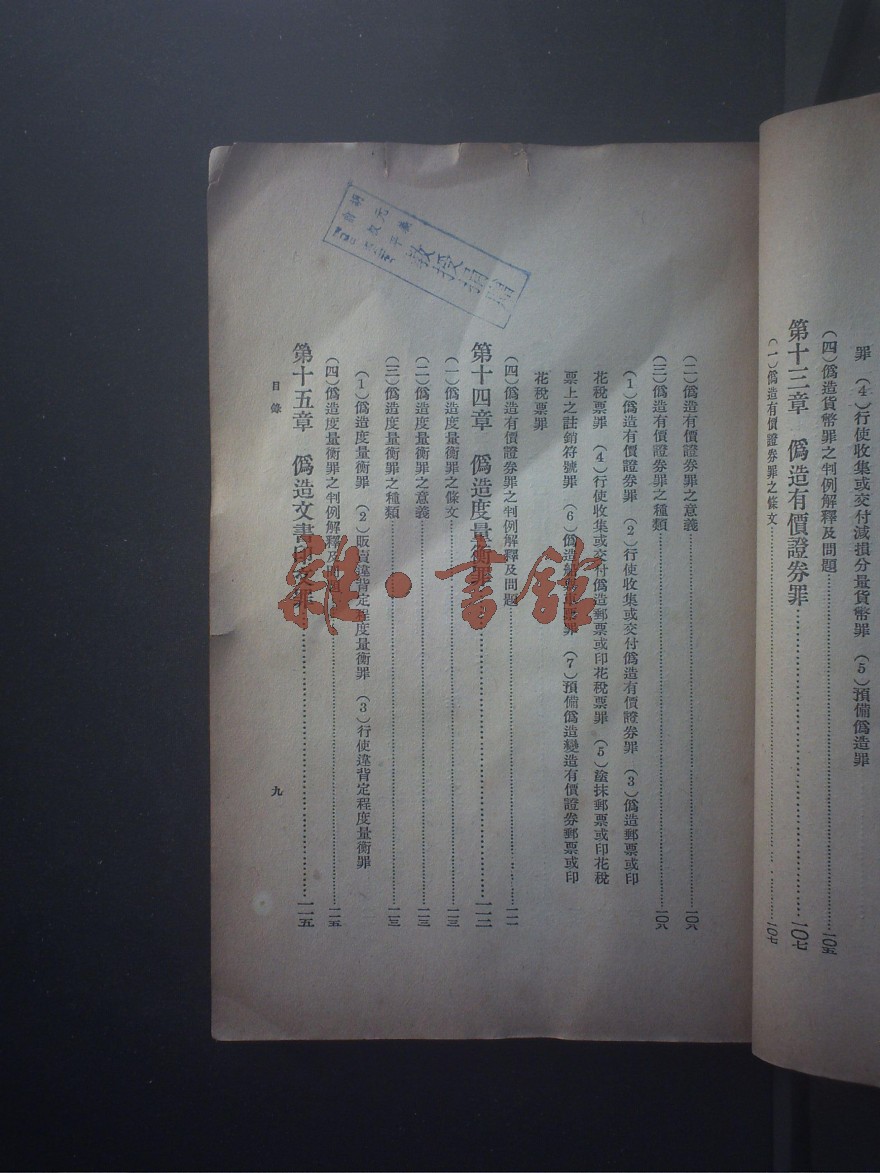 罪　（4）行使收集或交付減損分量貨幣罪　（5）預備僞造罪
（四）僞造貨幣罪之判例解釋及問題……一〇五
第十三章　僞造有價證券罪……一〇七
（一）僞造有價證券罪之條文……一〇七
（二）僞造有價證券罪之意義……一〇八
（三）僞造有價證券罪之種類……一〇八
（1）僞造有價證券罪　（2）行使收集或交付僞造有價證券罪　（3）僞造郵票或印
花稅票罪　（4）行使收集或交付僞造郵票或印花稅票罪　（5）塗抹郵票或印花稅
票上之註銷符號罪　（6）僞造　罪　（7）預備僞造變造有價證券郵票或印
花稅票罪
（四）僞造有價證券罪之判例解釋及問題……一一一
第十四章　僞造度量衡罪……一一二
（一）僞造度量衡罪之條文……一一三
（二）僞造度量衡罪之意義……一一三
（三）僞造度量衡罪之種類……一一三
（1）僞造度量衡罪　（2）販賣違背定程度量衡罪　（3）行使違背定程度量衡罪
（四）僞造度量衡罪之判例解釋及問題……一一五
第十五章　僞造文書印文罪……一一五
目錄
九
教授
雜·書館